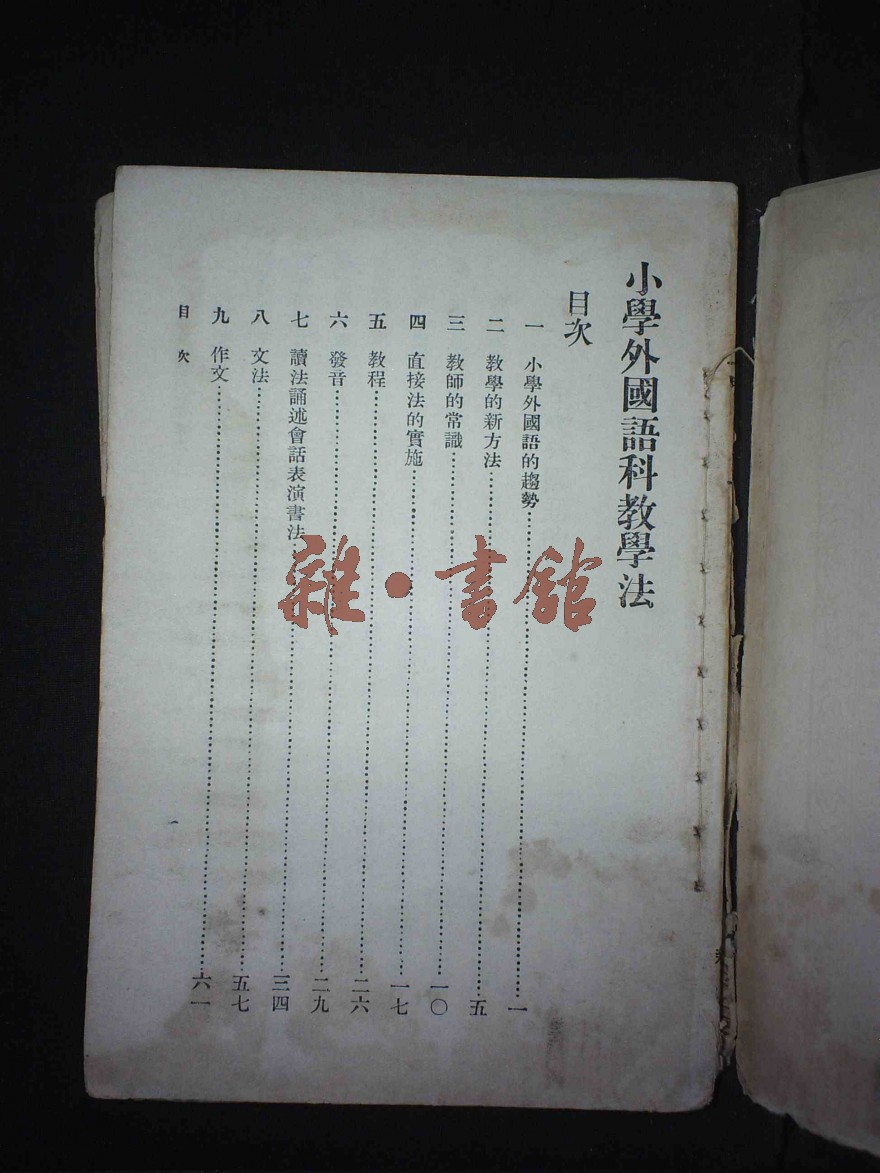 小學外國語科教學法
目次
一 小學外國語的趨勢……一
二 教學的新方法……五
三 教師的常識……一〇
四 直接法的實施……一七
五 教程……二六
六 發音……二九
七 讀法誦述會話表演書法……三四
八 文法……五七
九 作文……六一
目次
一
雜·書館